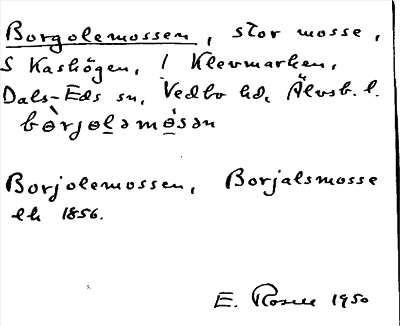 Borgolemossen, stor mosse,
S Kashögen, i Klevmarken,
Dals-Eds sn, Vedbo hd, Älvsb. l.
bò̲rjo̲ləmó̲sən
Borjolemossen, Borjalsmosse
elk 1856.
E. Rosell 1950